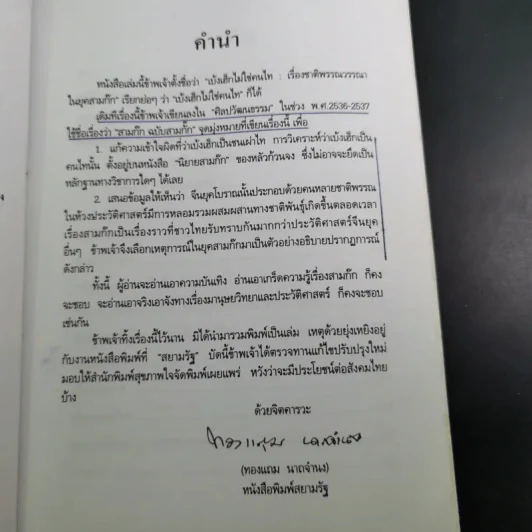 คำนำ
หนังสือเล่มนี้ข้าพเจ้าตั้งชื่อว่า "เบ้งเฮ็กไม่ใช่คนไท : เรื่องชาติพรรณวรรณา
ในยุคสามก๊ก" เรียกย่อๆ ว่า "เบ้งเฮ็กไม่ใช่คนไท" ก็ได้
เดิมทีเรื่องนี้ข้าพเจ้าเขียนลงใน "ศิลปวัฒนธรรม" ในช่วง พ.ศ.2536-2537
ใช้ชื่อเรื่องว่า "สามก๊ก ฉบับสามก๊ก" จุดมุ่งหมายที่เขียนเรื่องนี้ เพื่อ
1. แก้ความเข้าใจผิดที่ว่าเบ้งเฮ็กเป็นชนเผ่าไท การวิเคราะห์ว่าเบ้งเฮ็กเป็น
คนไทนั้น ตั้งอยู่บนหนังสือ "นิยายสามก๊ก" ของหลัวก้วนจง ซึ่งไม่อาจจะยึดเป็น
หลักฐานทางวิชาการใดๆ ได้เลย
2. เสนอข้อมูลให้เห็นว่า จีนยุคโบราณนั้นประกอบด้วยคนหลายชาติพรรณ
ในห้วงประวัติศาสตร์มีการหลอมรวมผสมผสานทางชาติพันธุ์เกิดขึ้นตลอดเวลา
เรื่องสามก๊กเป็นเรื่องราวที่ชาวไทยรับทราบกันมากกว่าประวัติศาสตร์จีนยุค
อื่นๆ ข้าพเจ้าจึงเลือกเหตุการณ์ในยุคสามก๊กมาเป็นตัวอย่างอธิบายปรากฏการณ์
ดังกล่าว
ทั้งนี้ ผู้อ่านจะอ่านเอาความบันเทิง อ่านเอาเกร็ดความรู้เรื่องสามก๊ก ก็คง
จะชอบ จะอ่านเอาจริงเอาจังทางเรื่องมานุษยวิทยาและประวัติศาสตร์ ก็คงจะชอบ
เช่นกัน
ข้าพเจ้าทิ้งเรื่องนี้ไว้นาน มิได้นำมารวมพิมพ์เป็นเล่ม เหตุด้วยยุ่งเหยิงอยู่
กับงานหนังสือพิมพ์ที่ "สยามรัฐ" บัดนี้ข้าพเจ้าได้ตรวจทานแก้ไขปรับปรุงใหม่
มอบให้สำนักพิมพ์สุขภาพใจจัดพิมพ์เผยแพร่ หวังว่าจะมีประโยชน์ต่อสังคมไทย
บ้าง
ด้วยจิตคารวะ
(ทองแถม นาถจำนง)
หนังสือพิมพ์สยามรัฐ